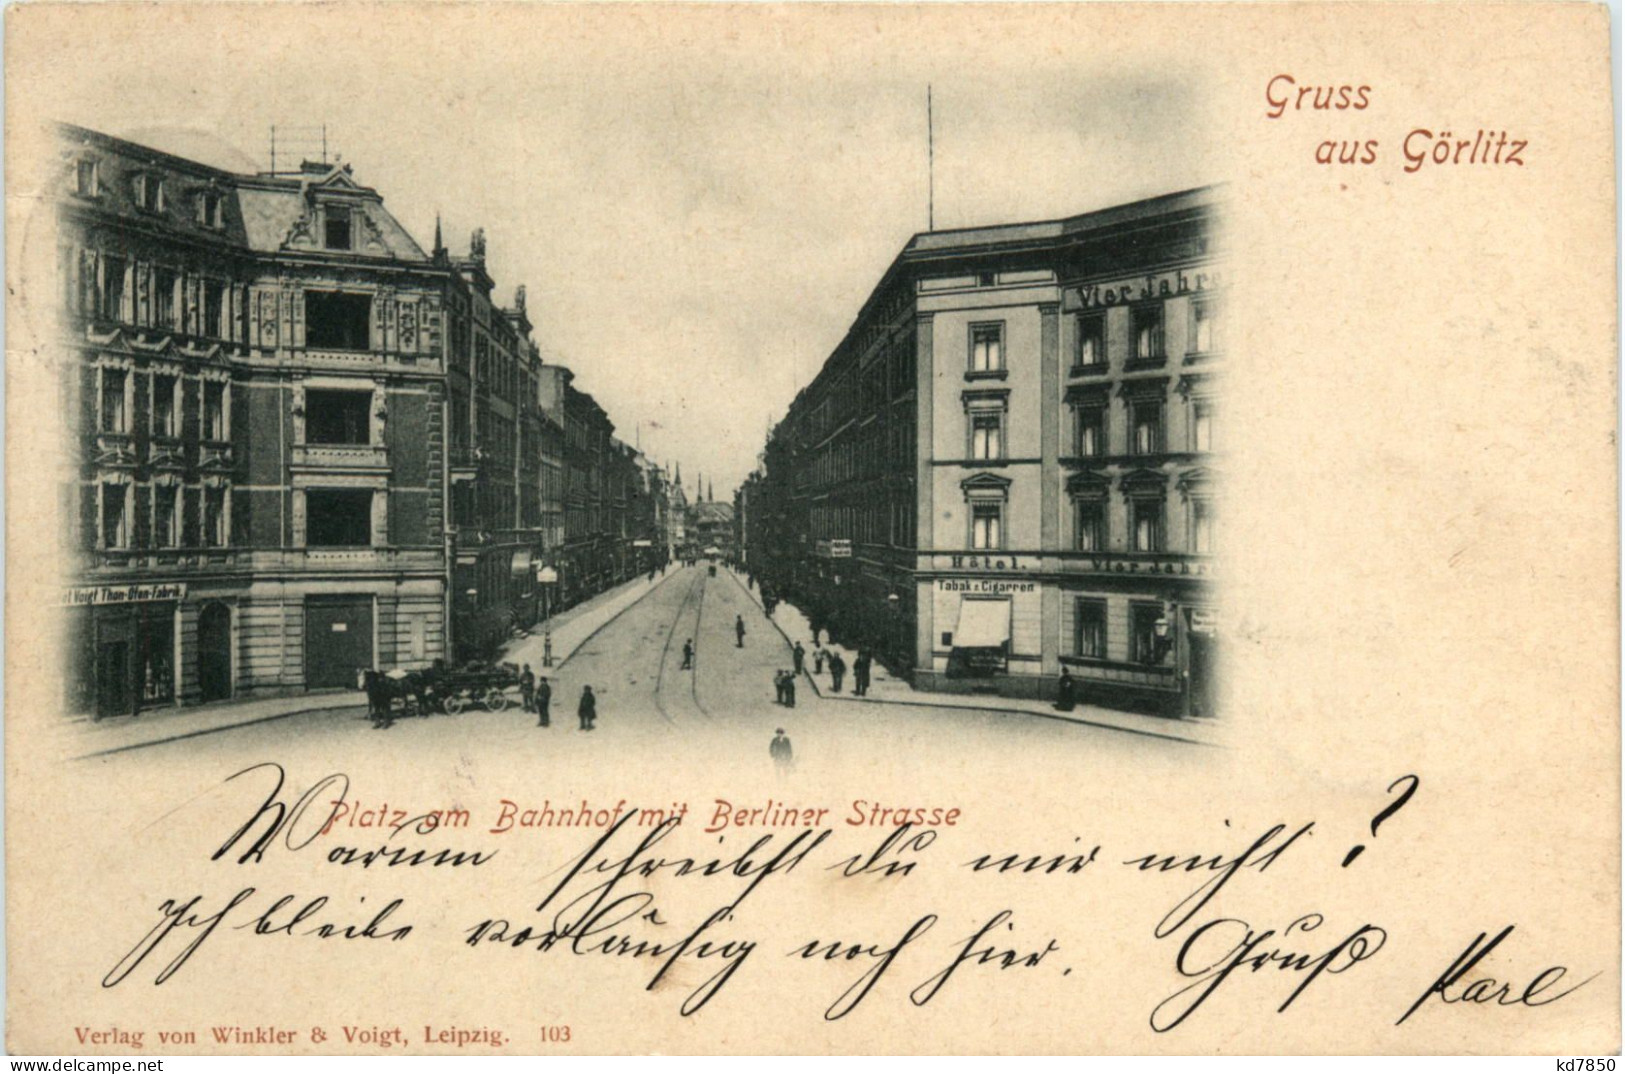 Gruss
aus Görlitz
Vier Jahre
Hôtel.
Vier Jahre
Tabak & Cigarren
Voigt Thon-Ofen-Fabrik.
Platz am Bahnhof mit Berliner Strasse
Warum schreibst du mir nicht?
Ich bleibe vorläufig noch hier. Gruß Karl
Verlag von Winkler & Voigt, Leipzig. 103
kd7850